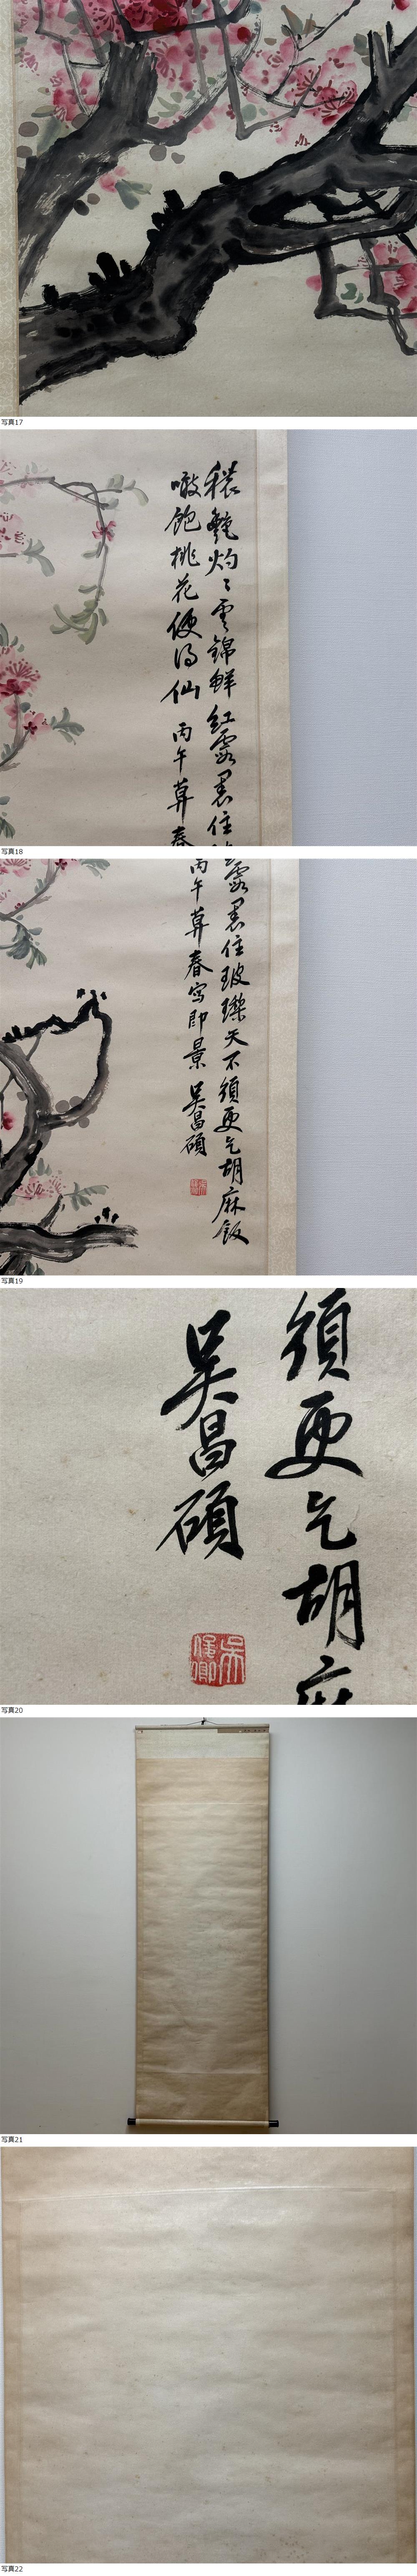 写真17
穠艶灼〻雲錦鮮紅露裹住
噉飽桃花便得仙丙午莫春
写真18
露裹住玻瓈天不須更乞胡麻飯
丙午莫春寫即景吳昌碩
写真19
須更乞胡麻
吳昌碩
写真20
写真21
写真22